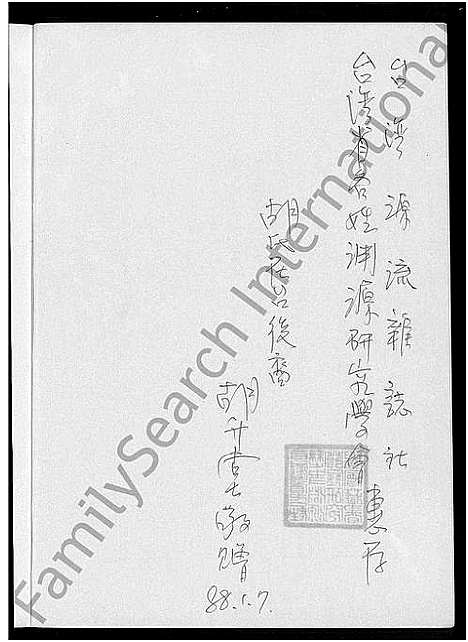 台湾源流雜誌社
台湾省各姓渊源研究學會 惠存
胡氏在台後裔
胡升堂敬贈
88.1.7.
FamilySearch International